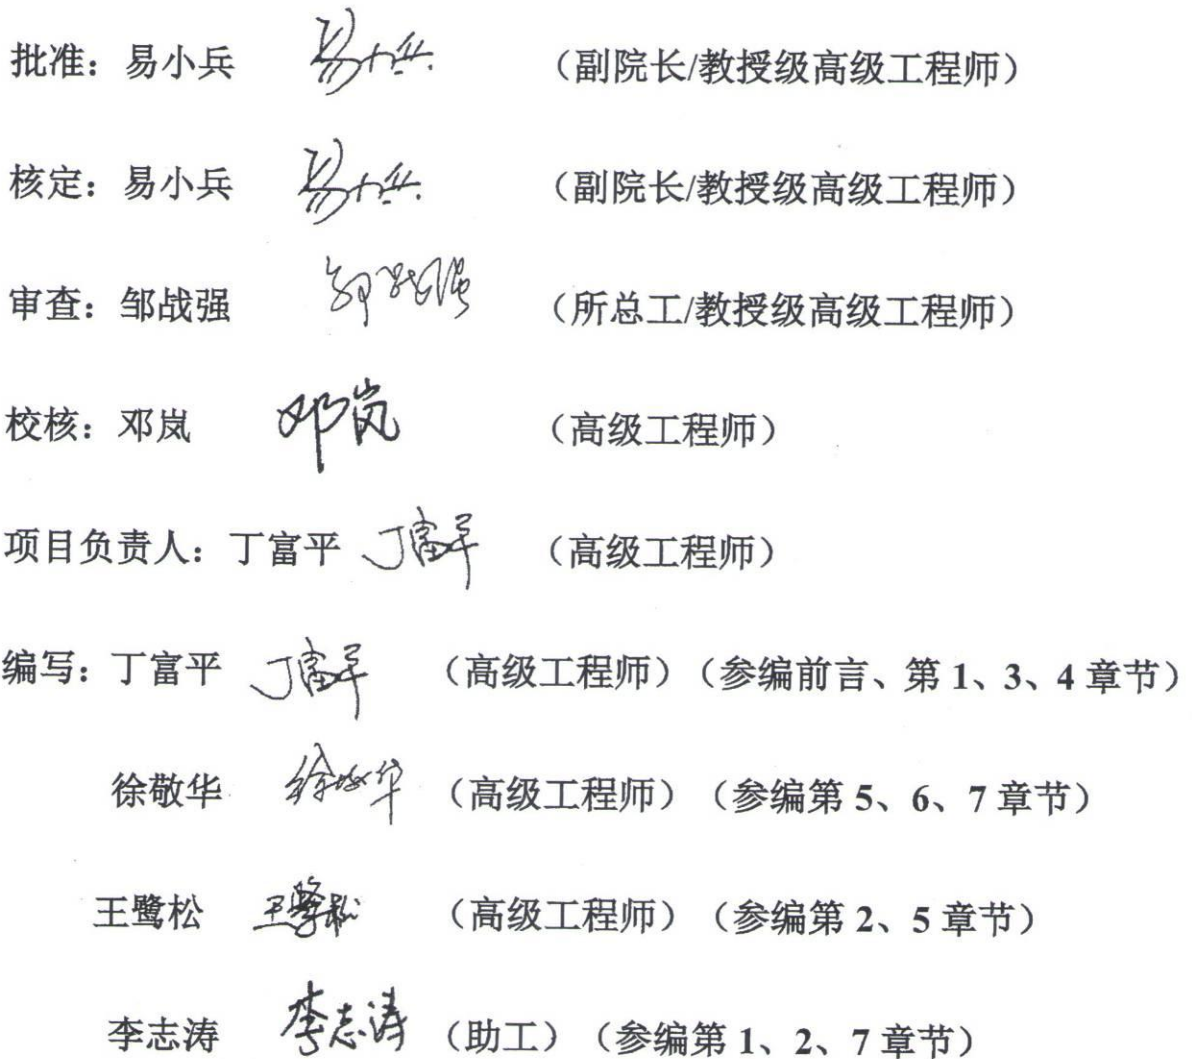 批准：易小兵 易小兵 （副院长/教授级高级工程师）
核定：易小兵 易小兵 （副院长/教授级高级工程师）
审查：邹战强 邹战强 （所总工/教授级高级工程师）
校核：邓岚 邓岚 （高级工程师）
项目负责人：丁富平 丁富平 （高级工程师）
编写：丁富平 丁富平 （高级工程师）（参编前言、第 1、3、4 章节）
徐敬华 徐敬华 （高级工程师）（参编第 5、6、7 章节）
王鹭松 王鹭松 （高级工程师）（参编第 2、5 章节）
李志涛 李志涛 （助工）（参编第 1、2、7 章节）